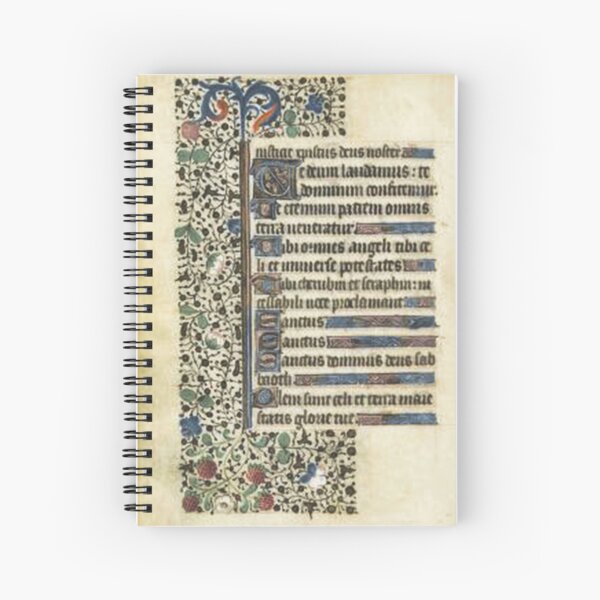 iusticie xpistus deus noster
Te deum laudamus : te
dominum confitemur.
Te eternum patrem omnis
terra veneratur
Tibi omnes angeli tibi ce
li et universe potestates
Tibi cherubin et seraphin : in
cessabili voce proclamant
Sanctus
Sanctus
Sanctus dominus deus sab
baoth
Pleni sunt celi et terra maie
statis glorie tue